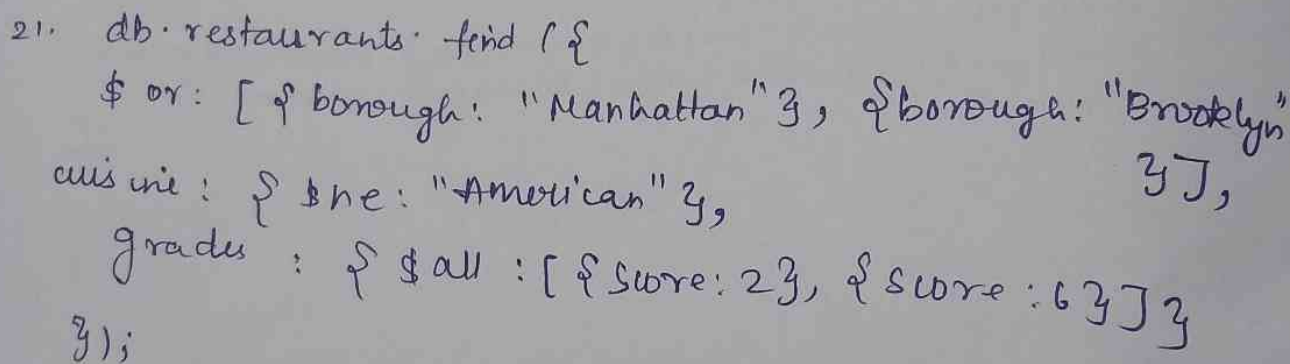 21. db.restaurants.find({
$or: [{borough: "Manhattan"}, {borough: "Brooklyn"
}],
cuisine: {$ne: "American"},
grades : {$all :[{Score: 2}, {score :6}]}
});